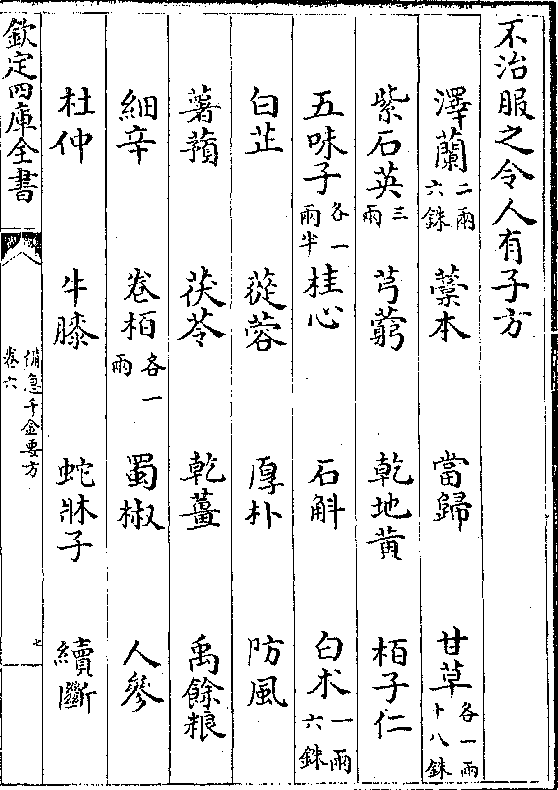 不治服之令人有子方
澤蘭二兩六銖 藁本 當歸 甘草各一兩十八銖
紫石英三兩 芎藭 乾地黄 栢子仁
五味子各一兩半 桂心 石斛 白术一兩六銖
白芷 蓯蓉 厚朴 防風
薯蕷 茯苓 乾薑 禹餘粮
細辛 卷栢各一兩 蜀椒 人參
杜仲 牛膝 蛇牀子 續斷
欽定四庫全書 備急千金要方卷六 七